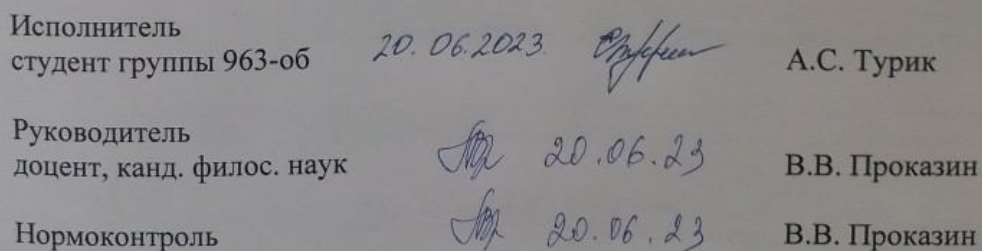 Исполнитель
студент группы 963-об 20.06.2023. А.С. Турик
Руководитель
доцент, канд. филос. наук 20.06.23 В.В. Проказин
Нормоконтроль 20.06.23 В.В. Проказин